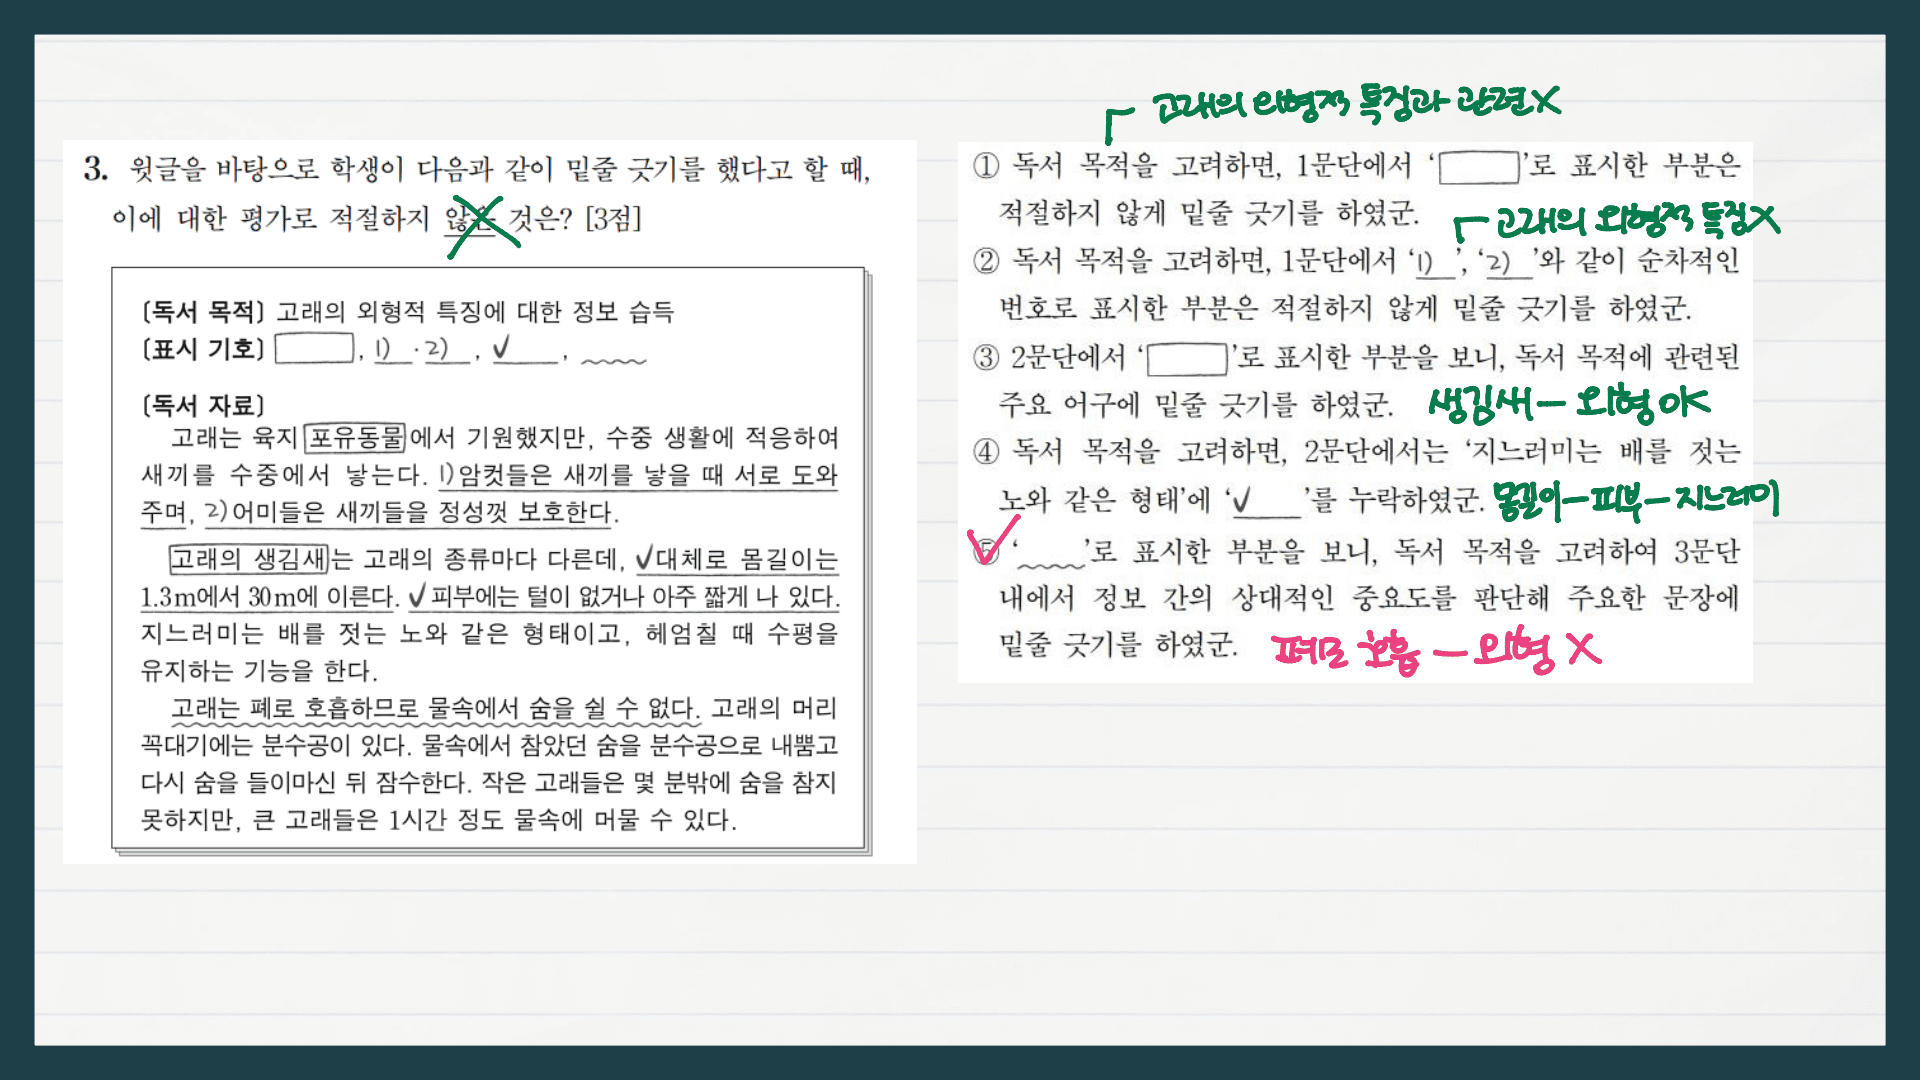 3. 윗글을 바탕으로 학생이 다음과 같이 밑줄 긋기를 했다고 할 때,
이에 대한 평가로 적절하지 않은 것은? [3점]
〔독서 목적〕 고래의 외형적 특징에 대한 정보 습득
〔표시 기호〕 , 1) · 2) , ✓ ,
〔독서 자료〕
고래는 육지 포유동물에서 기원했지만, 수중 생활에 적응하여
새끼를 수중에서 낳는다. 1)암컷들은 새끼를 낳을 때 서로 도와
주며, 2)어미들은 새끼들을 정성껏 보호한다.
고래의 생김새는 고래의 종류마다 다른데, ✓대체로 몸길이는
1.3m에서 30m에 이른다. ✓피부에는 털이 없거나 아주 짧게 나 있다.
지느러미는 배를 젓는 노와 같은 형태이고, 헤엄칠 때 수평을
유지하는 기능을 한다.
고래는 폐로 호흡하므로 물속에서 숨을 쉴 수 없다. 고래의 머리
꼭대기에는 분수공이 있다. 물속에서 참았던 숨을 분수공으로 내뿜고
다시 숨을 들이마신 뒤 잠수한다. 작은 고래들은 몇 분밖에 숨을 참지
못하지만, 큰 고래들은 1시간 정도 물속에 머물 수 있다.
고래의 외형적 특징과 관련X
① 독서 목적을 고려하면, 1문단에서 ‘ ’로 표시한 부분은
적절하지 않게 밑줄 긋기를 하였군.
고래의 외형적 특징X
② 독서 목적을 고려하면, 1문단에서 ‘1) ’, ‘2) ’와 같이 순차적인
번호로 표시한 부분은 적절하지 않게 밑줄 긋기를 하였군.
③ 2문단에서 ‘ ’로 표시한 부분을 보니, 독서 목적에 관련된
주요 어구에 밑줄 긋기를 하였군. 생김새 — 외형 OK
④ 독서 목적을 고려하면, 2문단에서는 ‘지느러미는 배를 젓는
노와 같은 형태’에 ‘✓ ’를 누락하였군. 몸길이 — 피부 — 지느러미
⑤ ‘ ’로 표시한 부분을 보니, 독서 목적을 고려하여 3문단
내에서 정보 간의 상대적인 중요도를 판단해 주요한 문장에
밑줄 긋기를 하였군. 폐로 호흡 — 외형 X